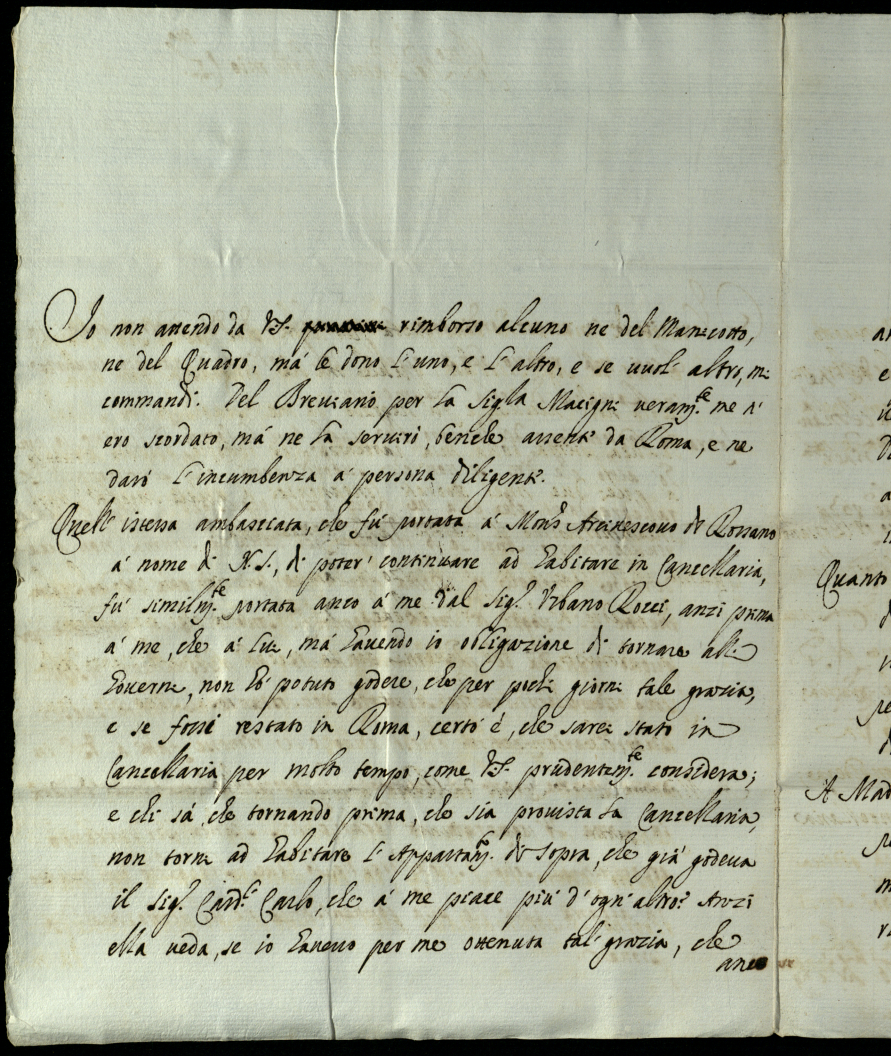 Io non attendo da VS. rimborso alcuno ne del Manicotto,
ne del Quadro, má le dono l'uno, e l'altro, e se vuol' altro, mi
commandi. Del Breviario per la Sig.la Macigni veram.te me n'
ero scordato, má ne la serviró, benche assente da Roma, e ne
daró l'incumbenza á persona diligente.
Quell' istessa ambasciata, che fú portata á Mons.r Arcivescovo di Rossano
á nome di N.S., di poter' continuare ad habitare in Cancellaria,
fú similm.te portata anco á me dal Sig.r Urbano Rocci, anzi prima
á me, che á lui, má havendo io obligazione di tornare alli
Governi, non hó potuto godere, che per pochi giorni tale grazia,
e se fossi restato in Roma, certo é, che sarei stato in
Cancellaria per molto tempo, come VS. prudentem.te considera;
e chi sá, che tornando prima, che sia provista la Cancellaria,
non torni ad habitare l'Appartam.to di sopra, che giá godeva
il Sig.r Card.le Carlo, che á me piace piú d'ogn'altro? Anzi
ella veda, se io havevo per me ottenuta tal' grazia, che
anco
Quanto
A Mad